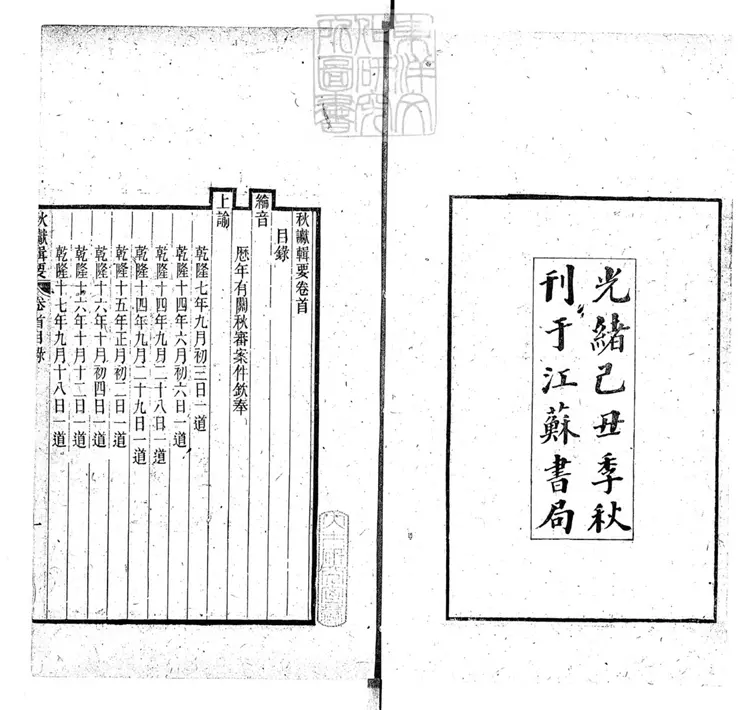 光緒己丑季秋
刊于江蘇書局
秋讞輯要卷首
目錄
綸音
歷年有關秋審案件欽奉
上諭
乾隆七年九月初三日一道
乾隆十四年六月初六日一道
乾隆十四年九月二十八日一道
乾隆十四年九月二十九日一道
乾隆十五年正月初二日一道
乾隆十六年十月初四日一道
乾隆十六年十月十二日一道
乾隆十七年九月十八日一道
秋讞輯要
卷首目錄
東洋文化研究所圖書